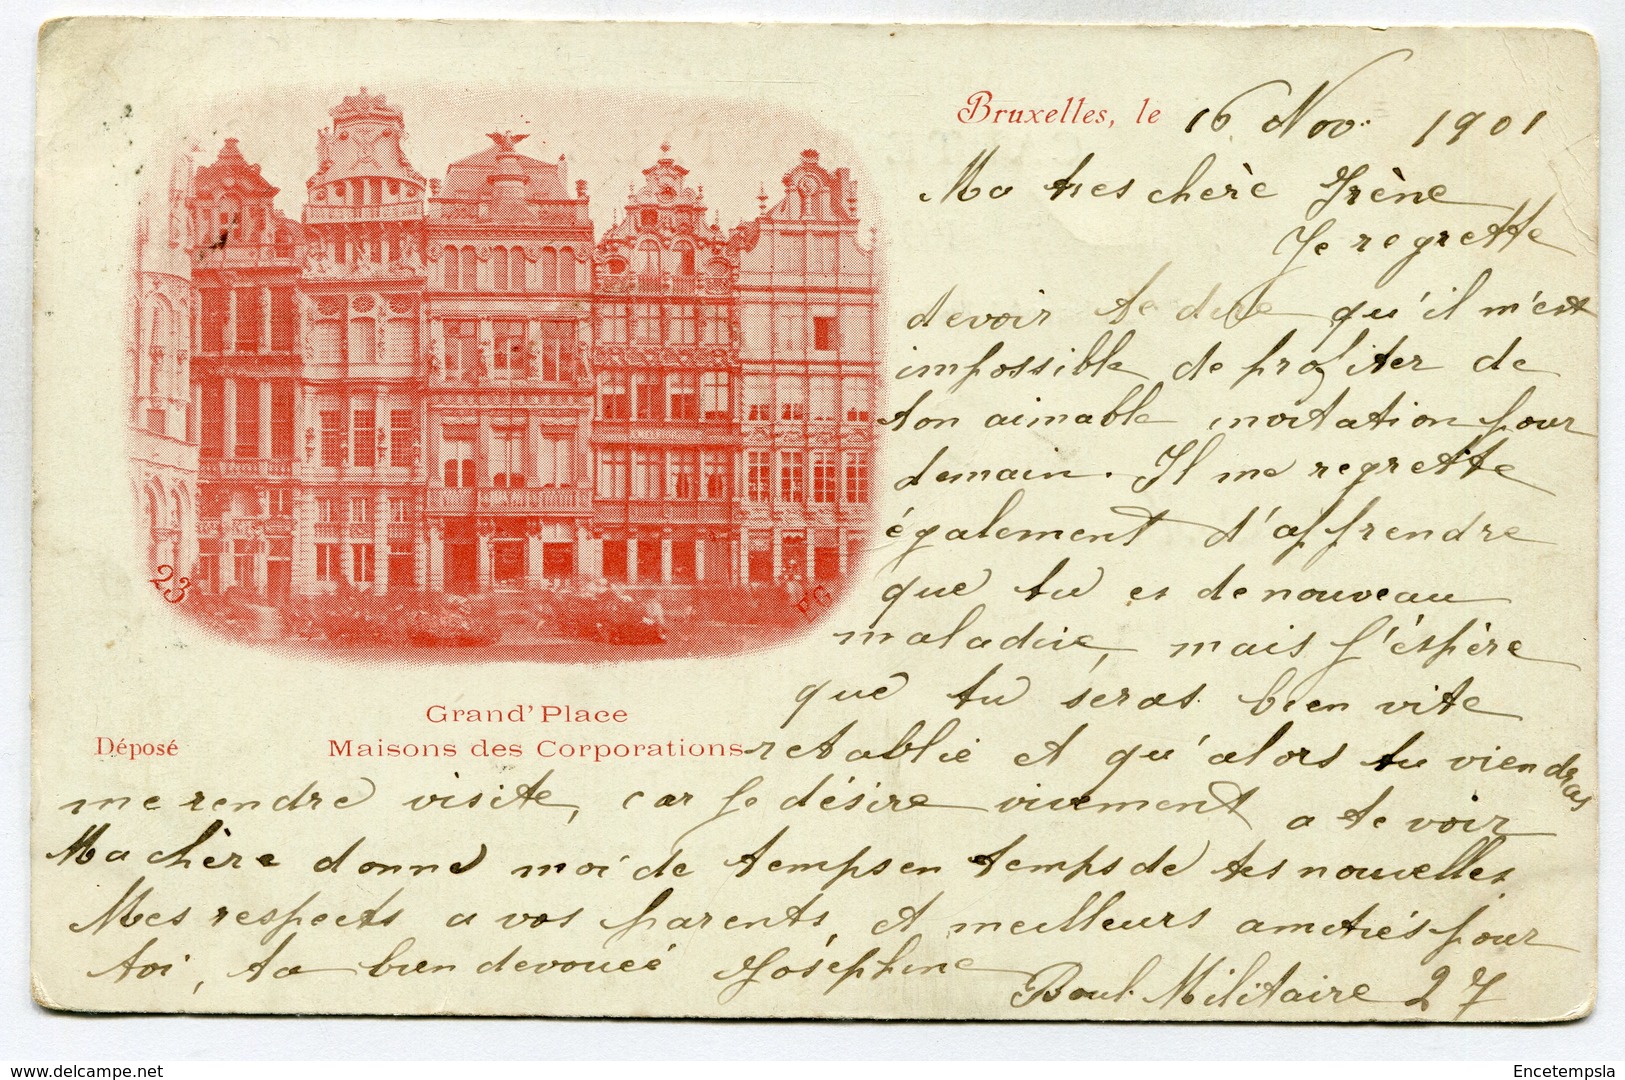 Bruxelles, le 16 Nov. 1901
Ma tres chère Irène
Je regrette
devoir te dire qu'il m'est
impossible de profiter de
ton aimable invitation pour
demain. Il me regrette
également d'affrendre
que tu es de nouveau
maladive, mais j'éspère
que tu seras bien vite
retablie et qu'alors tu viendras
me rendre visite, car je désire vivement a te voir
Ma chère donne moi de temps en temps de tes nouvelles.
Mes respects a vos parents, et meilleurs amitiés pour
toi, ta bien devouée Joséphine
Boul. Militaire 27
23
FG
Grand'Place
Déposé
Maisons des Corporations
delcampe.net
Encetempsla